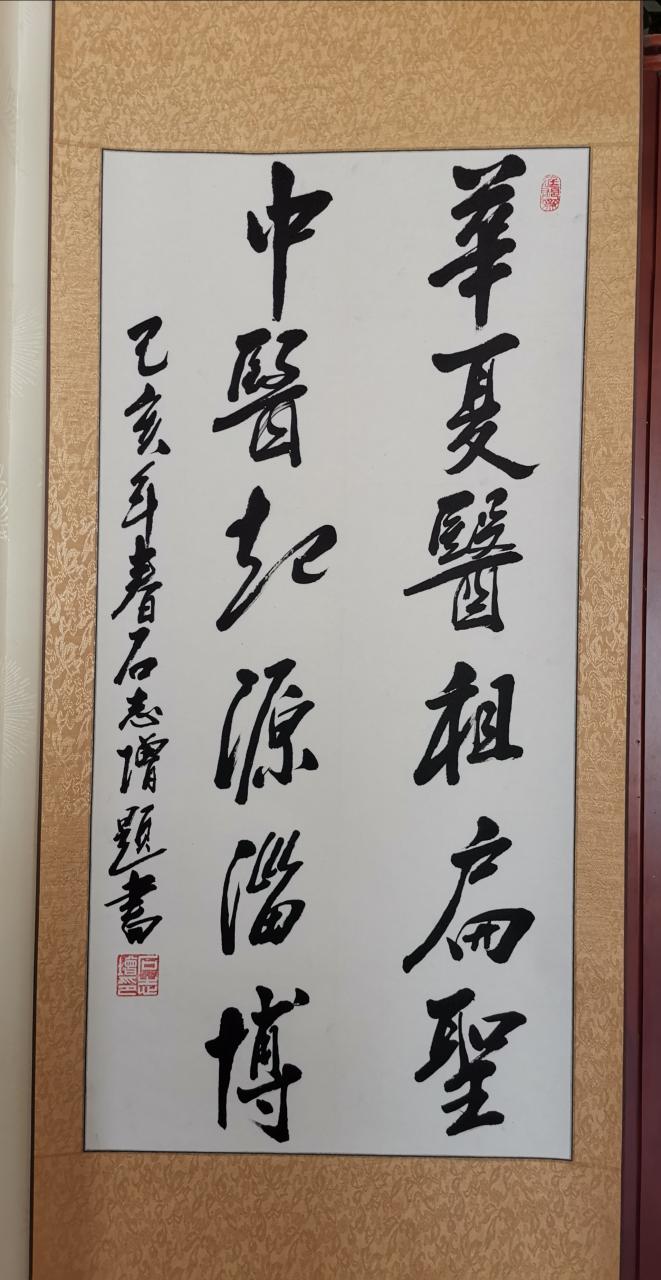 華夏醫祖扁聖
中醫起源淄博
己亥年春石志增題書